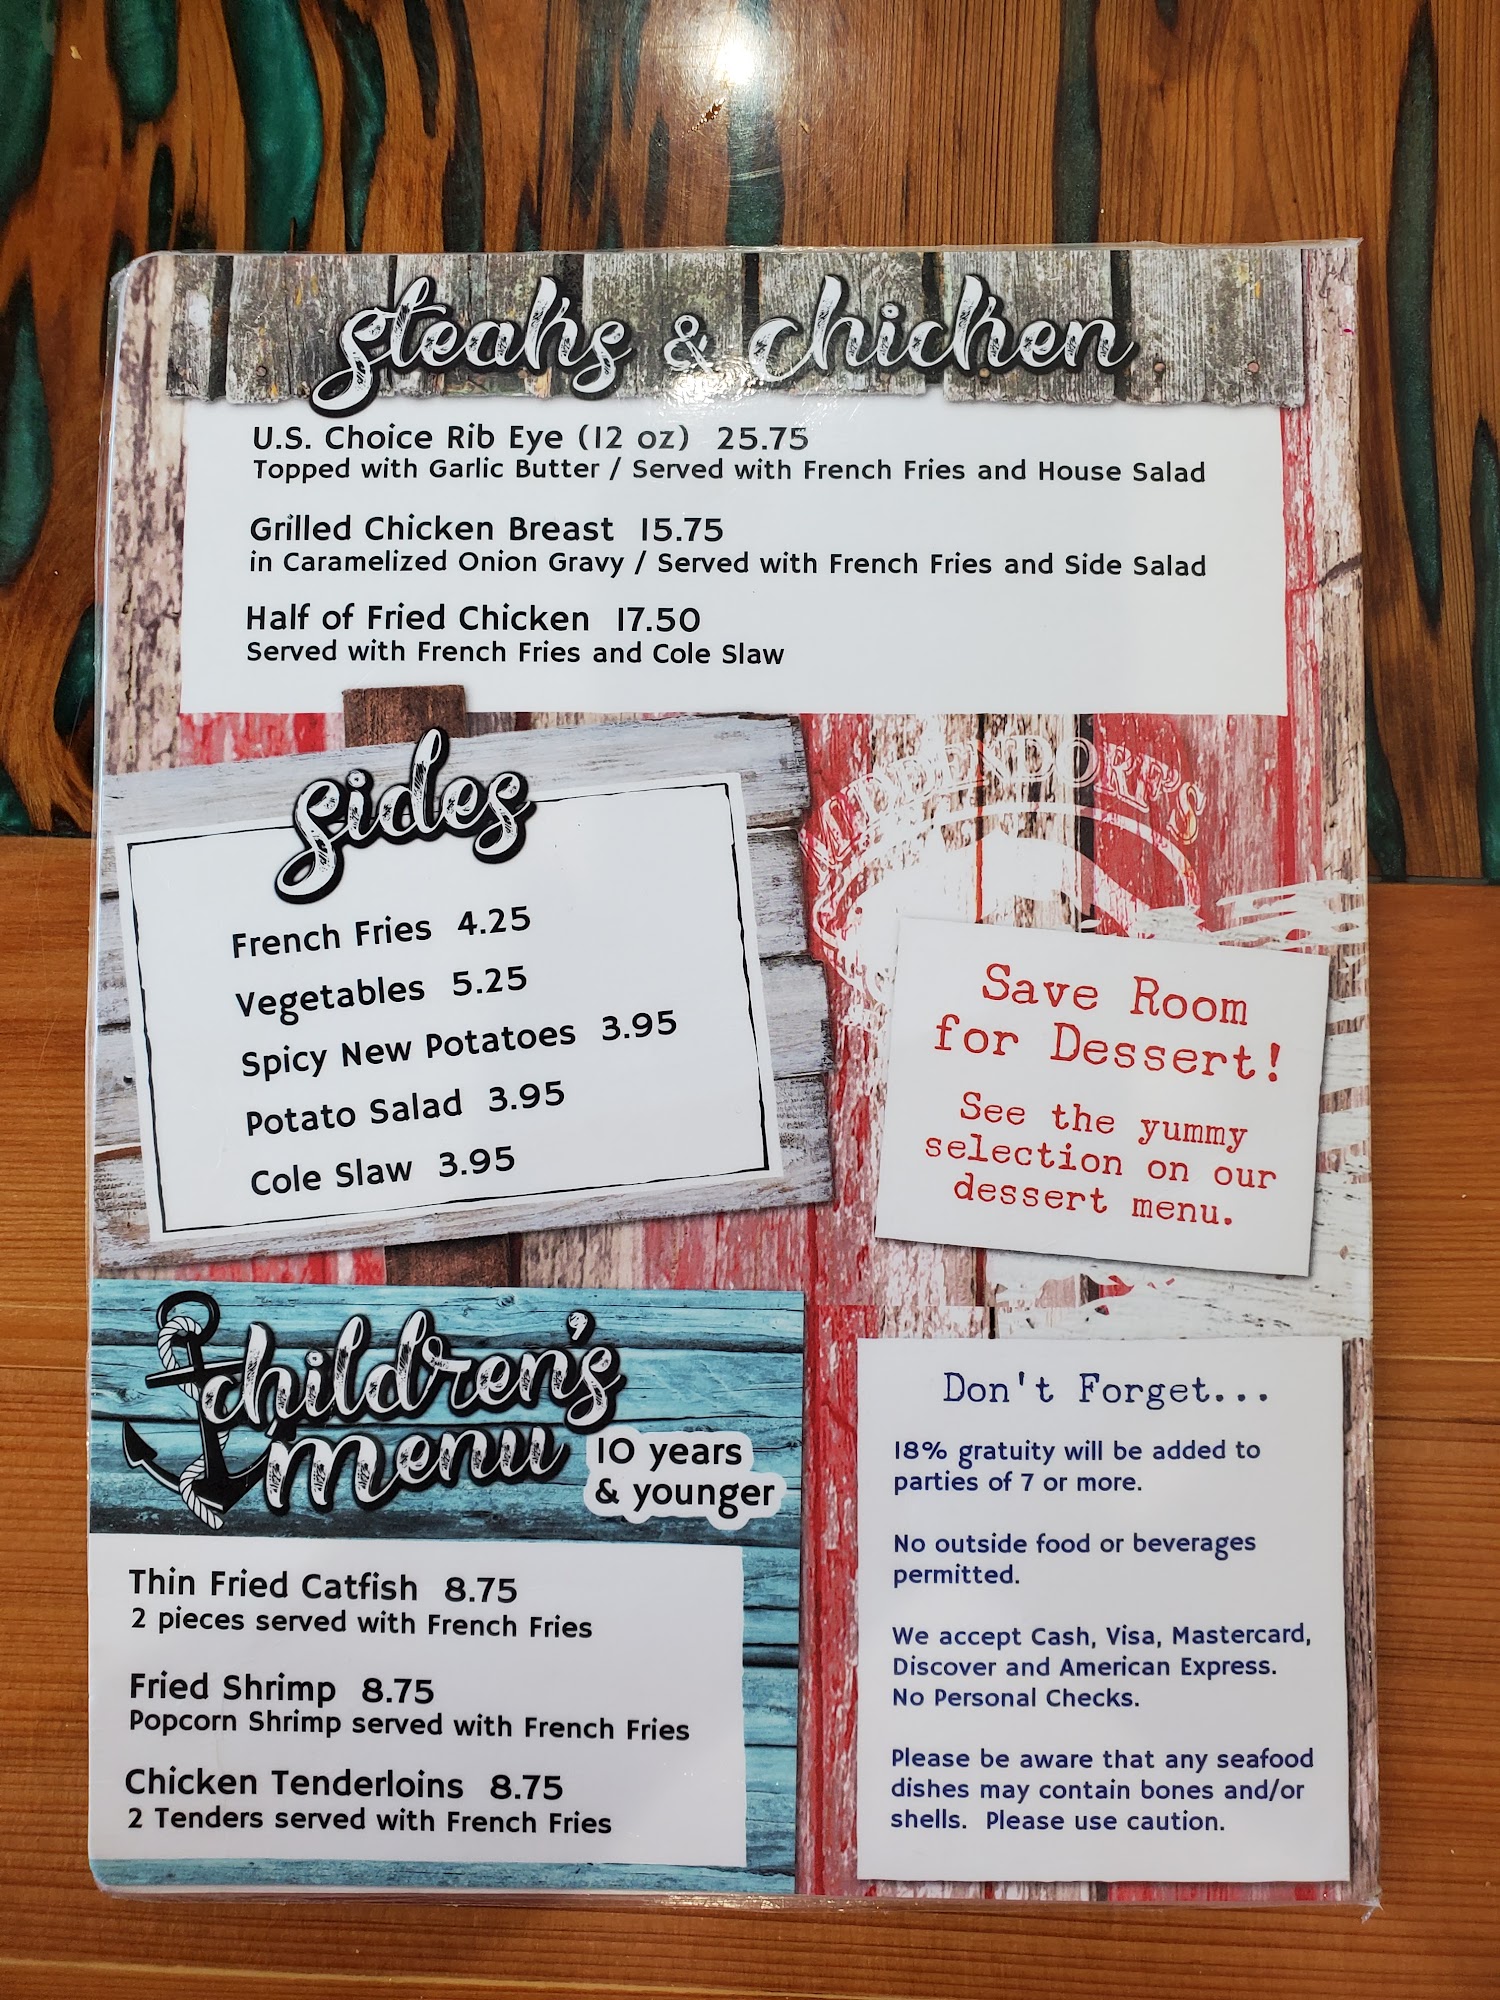 steaks & chicken
U.S. Choice Rib Eye (12 oz) 25.75
Topped with Garlic Butter / Served with French Fries and House Salad
Grilled Chicken Breast 15.75
in Caramelized Onion Gravy / Served with French Fries and Side Salad
Half of Fried Chicken 17.50
Served with French Fries and Cole Slaw
sides
French Fries 4.25
Vegetables 5.25
Spicy New Potatoes 3.95
Potato Salad 3.95
Cole Slaw 3.95
MIDDENDORF'S
Save Room
for Dessert!
See the yummy
selection on our
dessert menu.
children's
menu
10 years
& younger
Thin Fried Catfish 8.75
2 pieces served with French Fries
Fried Shrimp 8.75
Popcorn Shrimp served with French Fries
Chicken Tenderloins 8.75
2 Tenders served with French Fries
Don't Forget...
18% gratuity will be added to
parties of 7 or more.
No outside food or beverages
permitted.
We accept Cash, Visa, Mastercard,
Discover and American Express.
No Personal Checks.
Please be aware that any seafood
dishes may contain bones and/or
shells. Please use caution.